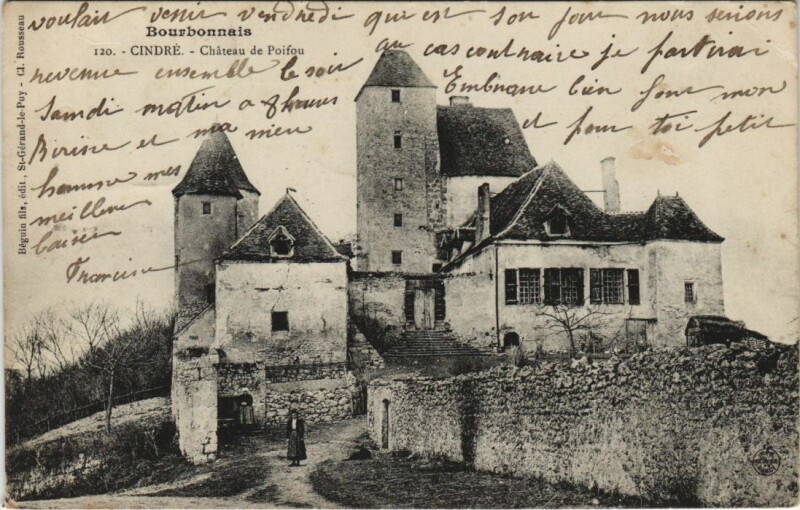 voulait venir vendredi que est son jour nous serions
Bourbonnais
120. - CINDRÉ. - Château de Poifou
revenue ensemble le soir
Au cas contraire je partirai
Samdi matin a 8 heures
Embrasse bien pour mon
et ma mieu
et pour toi petit
homme mes
meilleur
baisée
Francise
Béguin fils, édit., St-Gérand-le-Puy - Cl. Rousseau